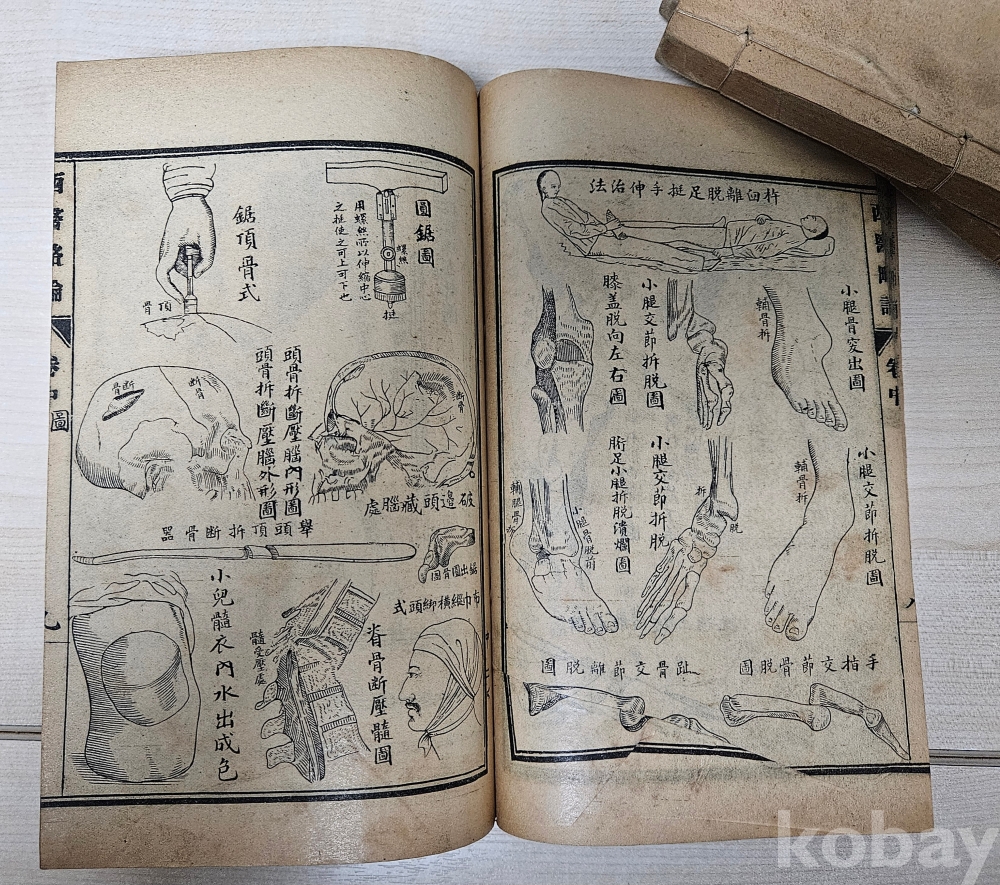 西醫略論
卷中
杵臼離脫足挺手伸治法
小腿骨突出圖
輔骨拆
小腿交節拆脫圖
膝蓋脫向左右圖
小腿交節拆脫圖
輔骨拆
小腿交節拆脫
拆
脫
胻足小腿拆脫潰爛圖
小腿骨脫開
輔腿骨拆
手指交節骨脫圖
趾骨交節離脫圖
圓鋸圖
螺絲
挺
用螺絲所以伸縮中心
之挺使之可上可下也
鋸頂骨式
頂骨
頭骨拆斷壓腦內形圖
斷骨
破邊頭藏腦處
頭骨拆斷壓腦外形圖
斷骨
斷骨
舉頭頂折斷骨器
鋸出圓骨圖
布巾縱橫綁頭式
脊骨斷壓髓圖
髓受壓處
小兒髓衣內水出成色
西醫略論
卷中圖
九
kobay